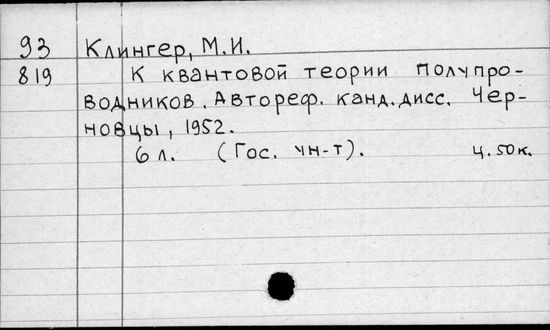 93 Клингер, М.И.
819 К квантовой теории полупро-
водников. Автореф. канд. дисс. Чер-
новцы, 1952.
6 л. (Гос. ун-т). ц. 50к.